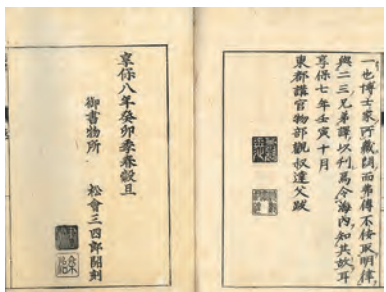 一也博士家所藏闕而弗傳不佞取明律
與二三兄弟譯以利爲令海內知其故耳
享保七年壬寅十月
東都講官物部觀叔達父跋
享保八年癸卯季春穀旦
御書物所
松會三四郎開刻